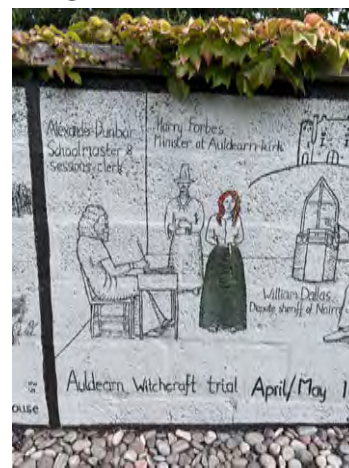 Alexander Dunbar
Schoolmaster &
sessions clerk
Harry Forbes
Minister at Auldearn kirk
William Dallas
Depute sheriff of Nairn
ouse
Auldearn Witchcraft trial April/May 1